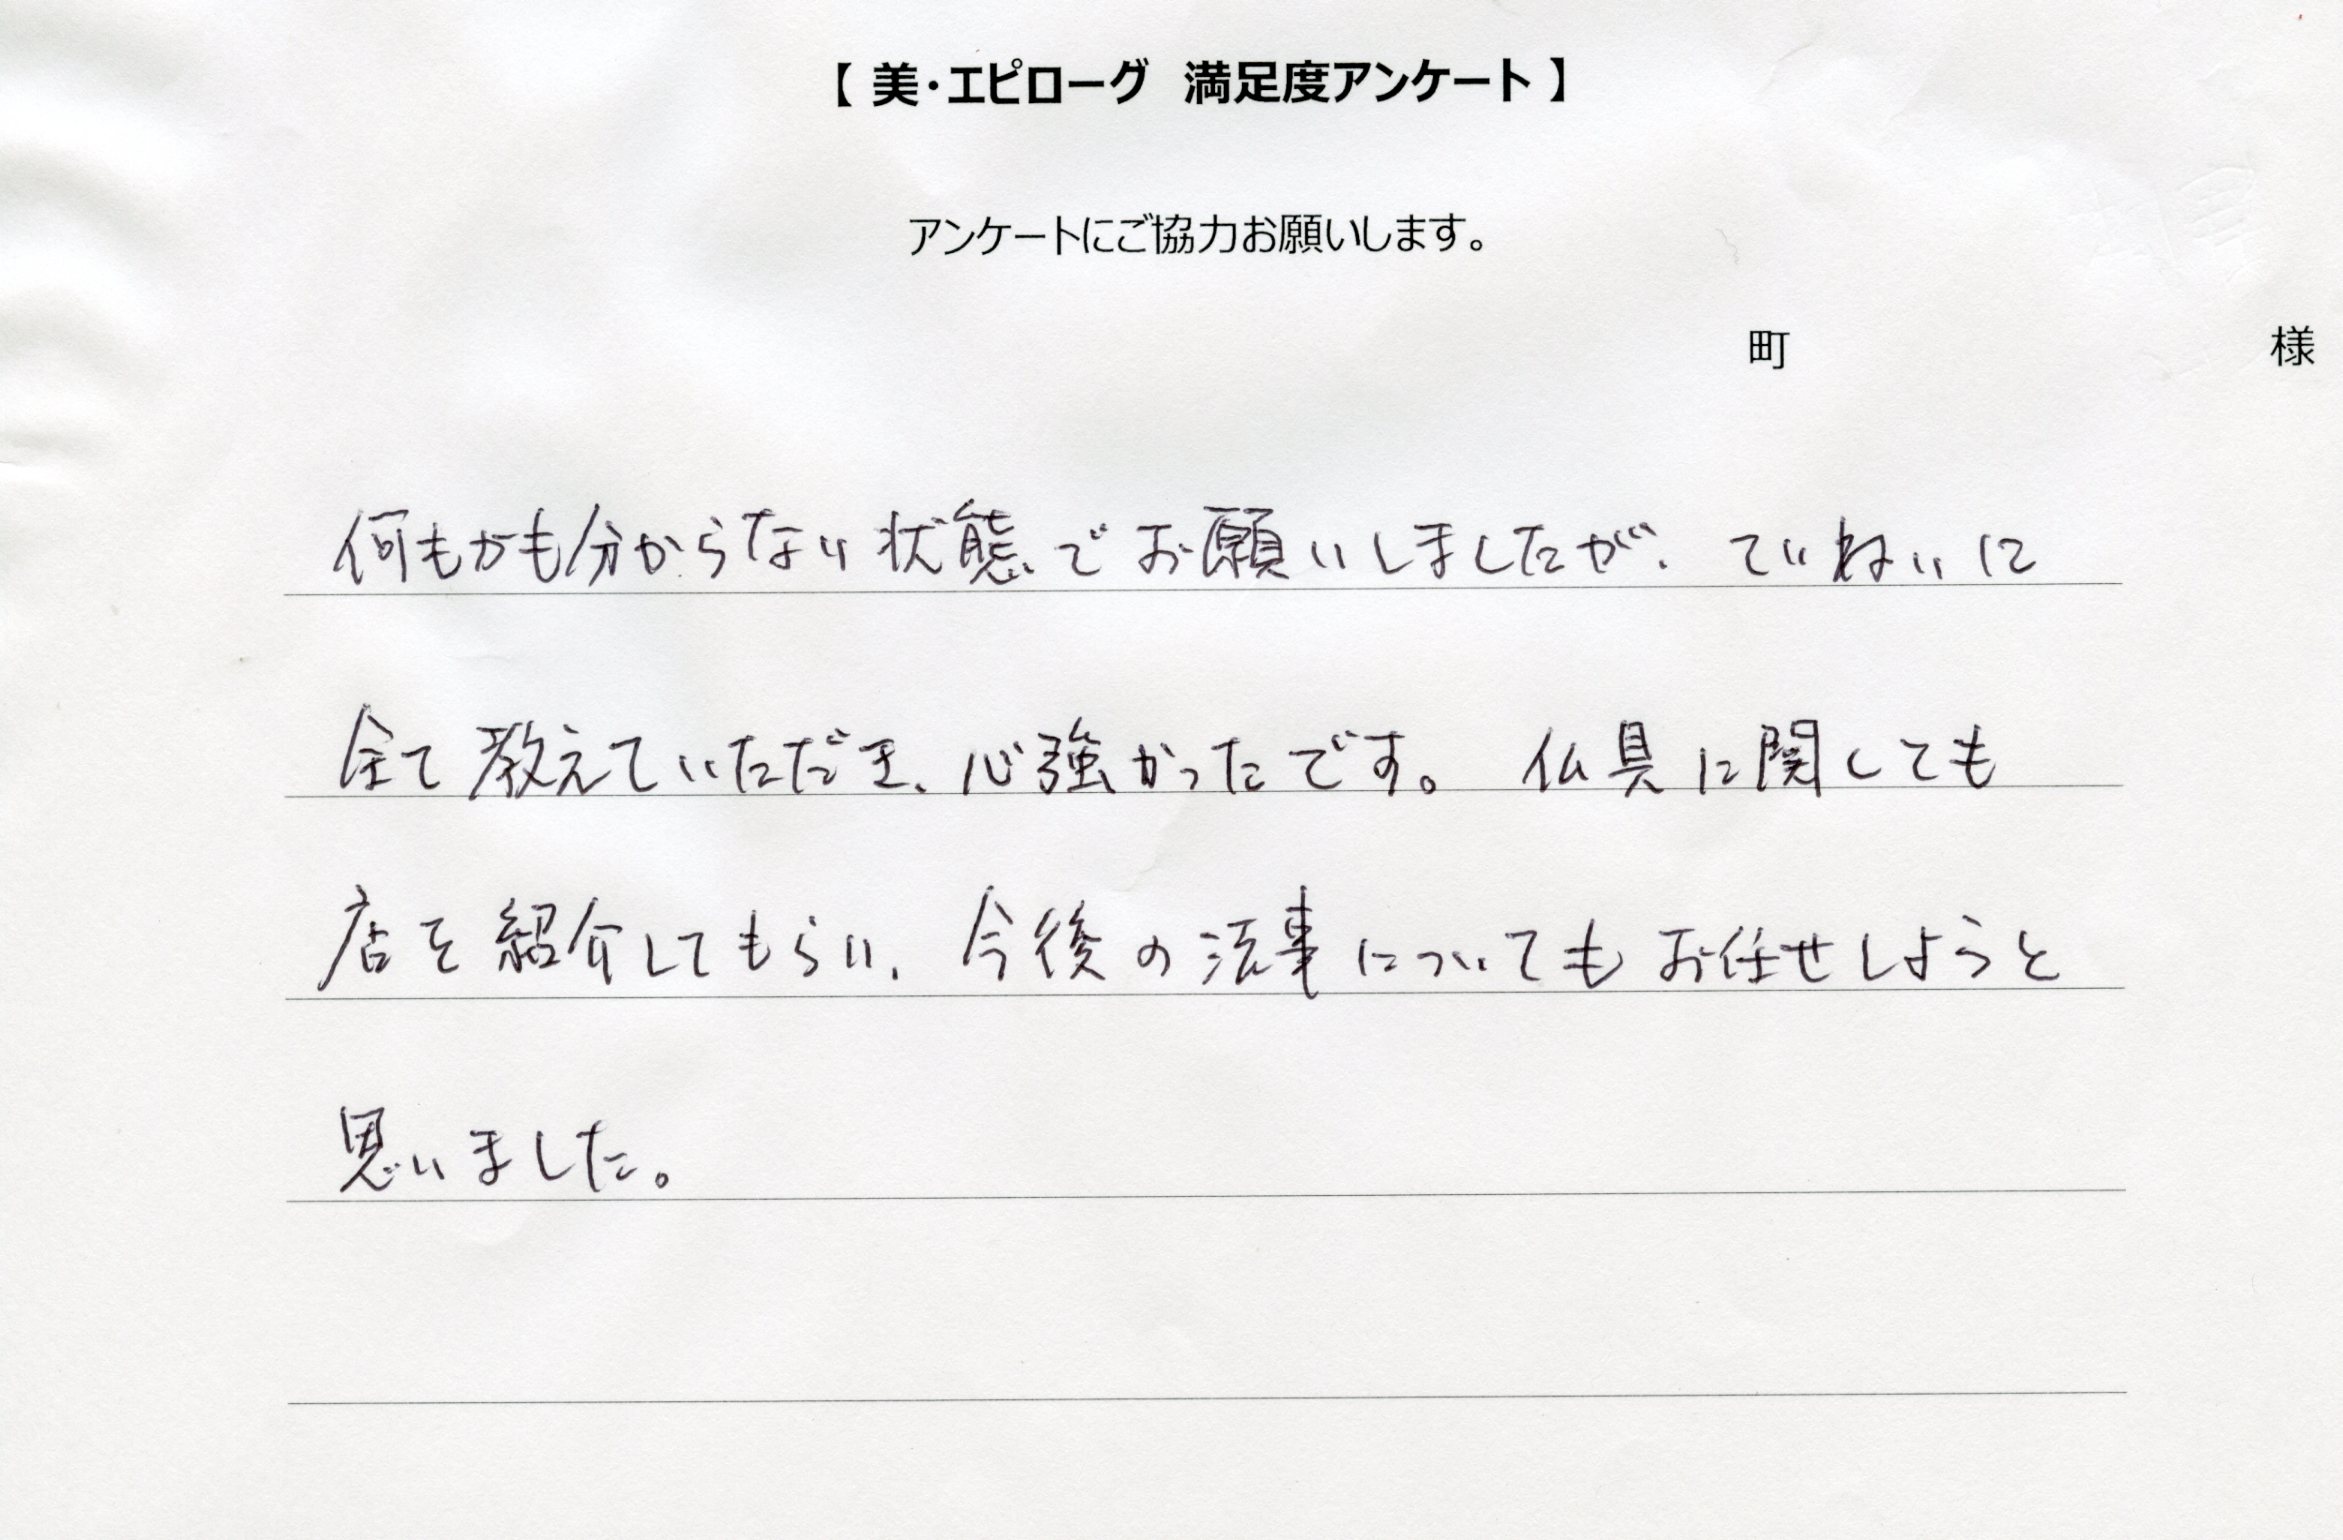 【 美・エピローグ 満足度アンケート 】
アンケートにご協力お願いします。
町 様
何もかも分からない状態でお願いしましたが、ていねいに
全て教えていただき、心強かったです。 仏具に関しても
店を紹介してもらい、今後の法事についてもお任せしようと
思いました。